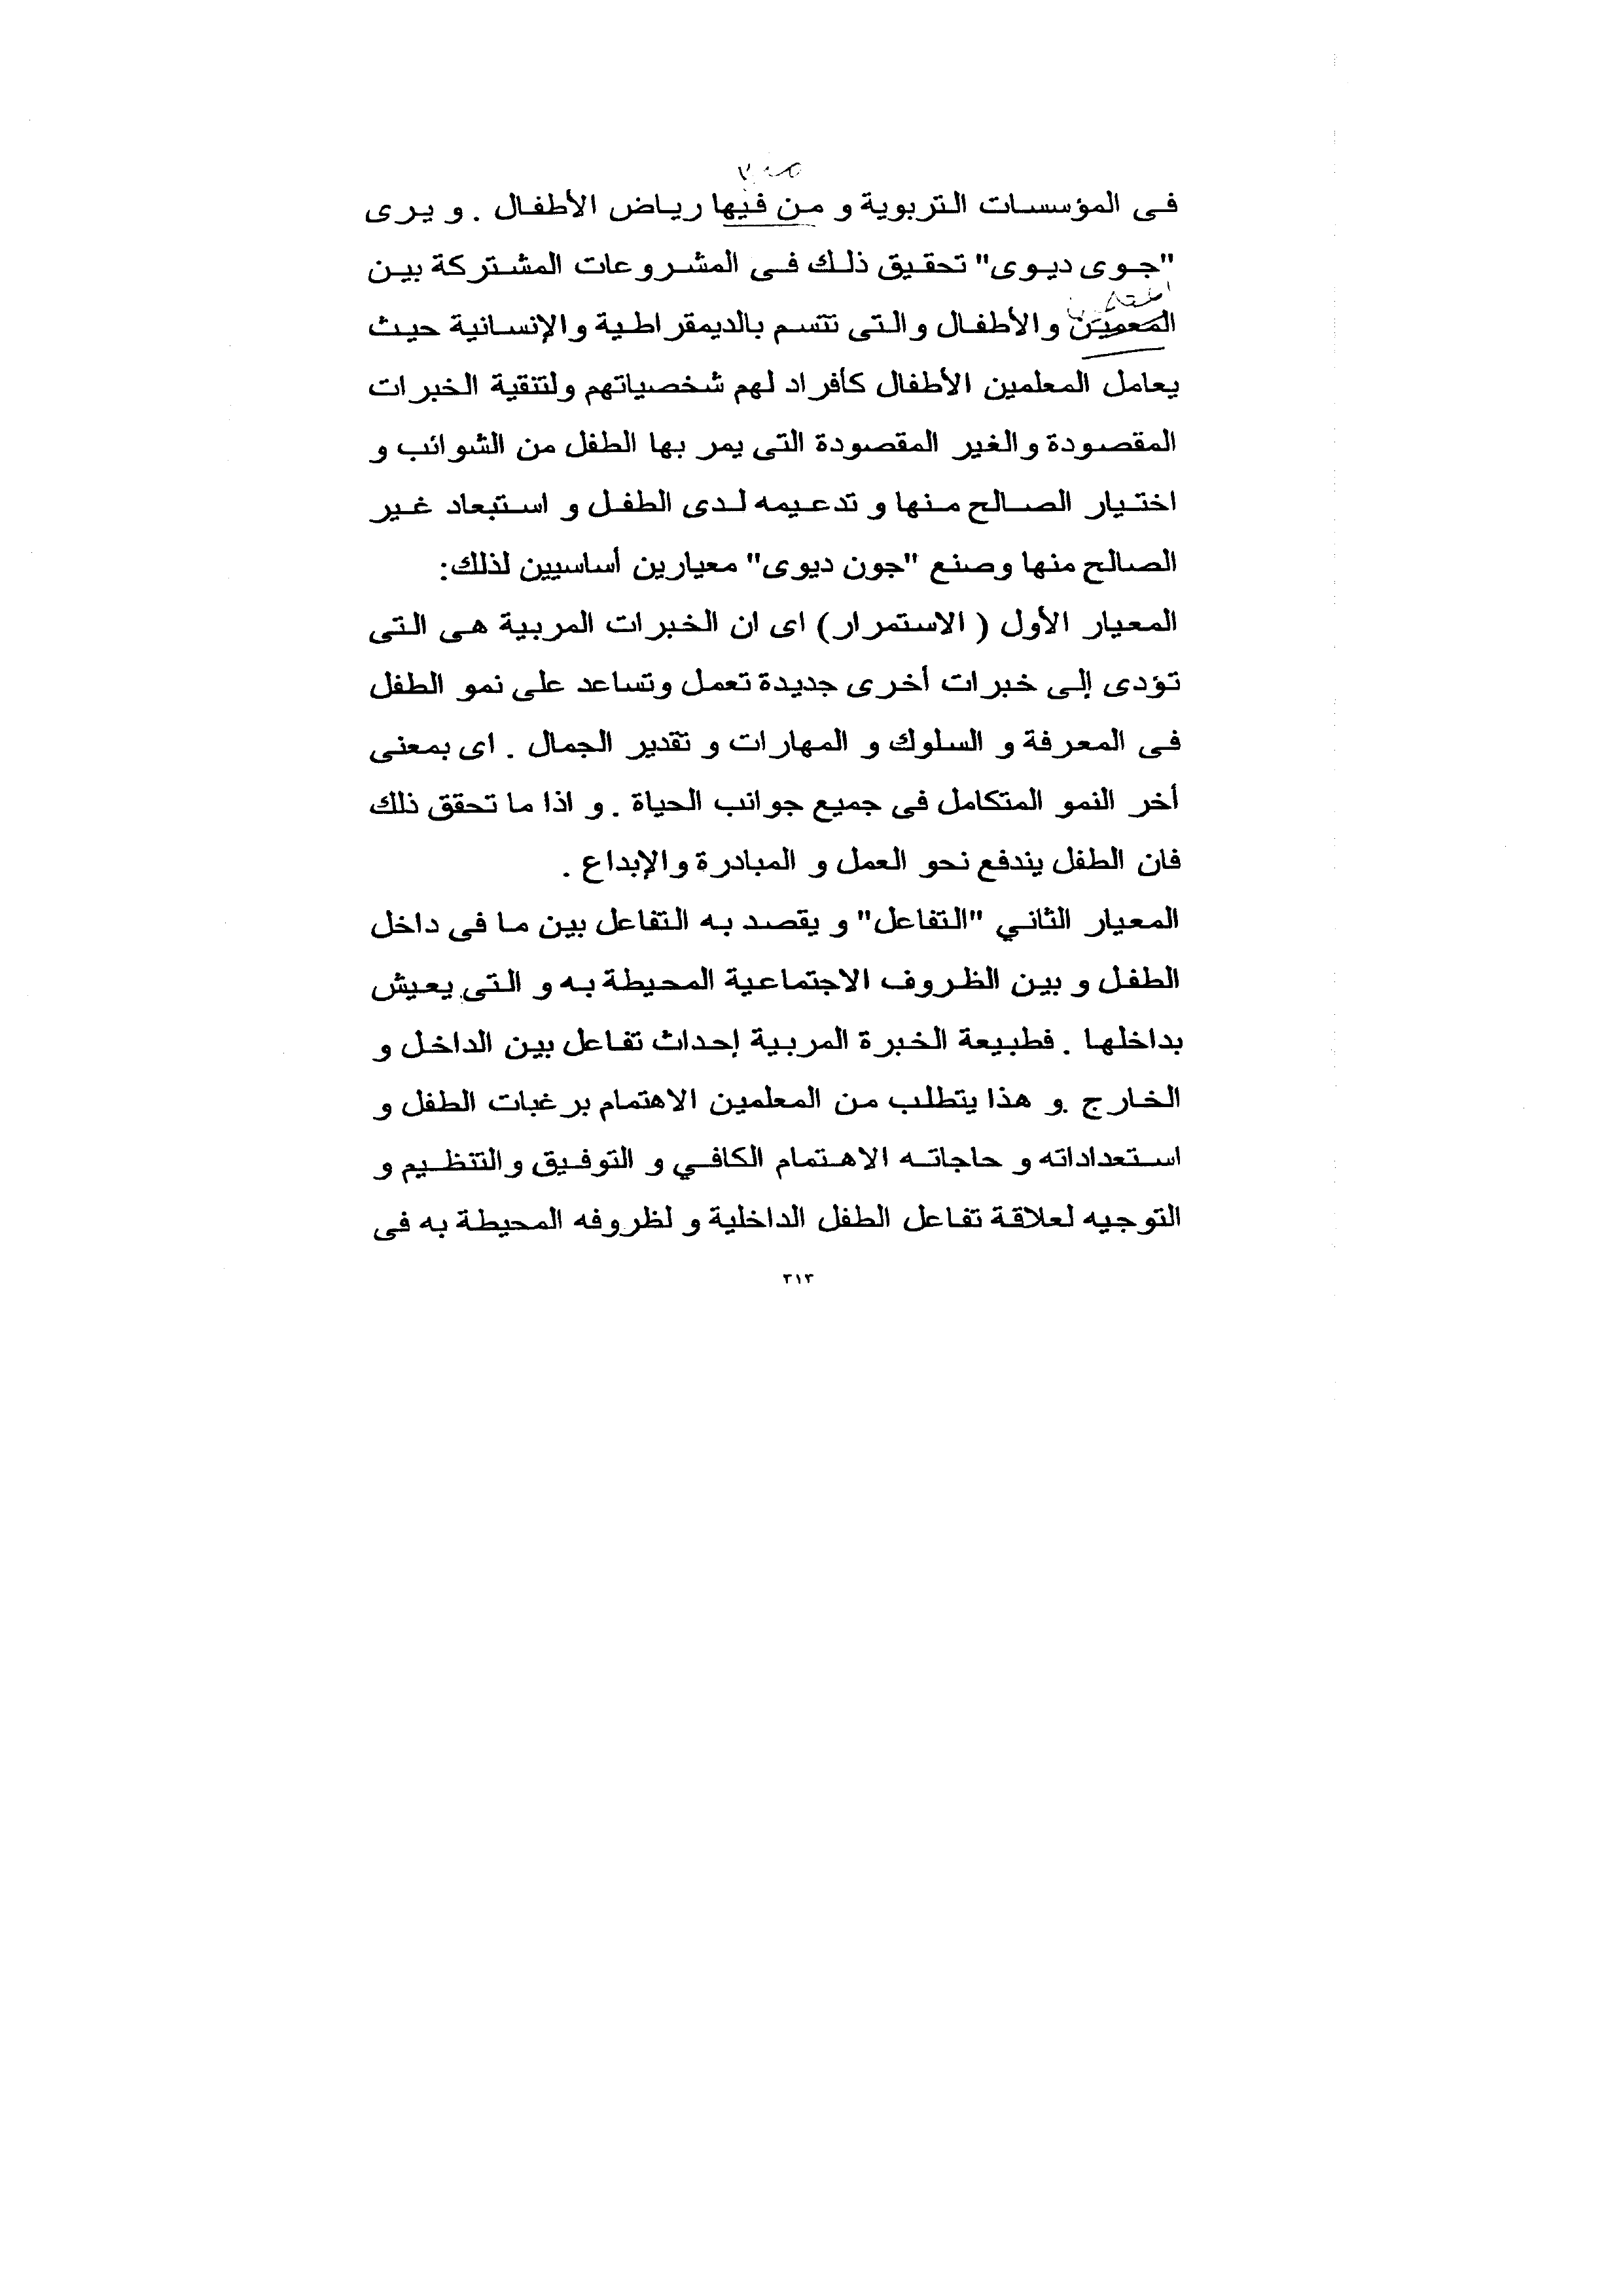 فى المؤسسات التربوية و من فيها رياض الأطفال . و يرى
"جوى ديوى" تحقيق ذلك فى المشروعات المشتركة بين
المعمين والأطفال والتى تتسم بالديمقراطية والإنسانية حيث
يعامل المعلمين الأطفال كأفراد لهم شخصياتهم ولتنقية الخبرات
المقصودة والغير المقصودة التى يمر بها الطفل من الشوائب و
اختيار الصالح منها و تدعيمه لدى الطفل و استبعاد غير
الصالح منها وصنع "جون ديوى" معيارين أساسيين لذلك:
المعيار الأول ( الاستمرار) اى ان الخبرات المربية هى التى
تؤدى إلى خبرات أخرى جديدة تعمل وتساعد على نمو الطفل
فى المعرفة و السلوك و المهارات و تقدير الجمال . اى بمعنى
أخر النمو المتكامل فى جميع جوانب الحياة . و اذا ما تحقق ذلك
فان الطفل يندفع نحو العمل و المبادرة والإبداع .
المعيار الثاني "التفاعل" و يقصد به التفاعل بين ما فى داخل
الطفل و بين الظروف الاجتماعية المحيطة به و التى يعيش
بداخلها . فطبيعة الخبرة المربية إحداث تفاعل بين الداخل و
الخارج .و هذا يتطلب من المعلمين الاهتمام برغبات الطفل و
استعداداته و حاجاته الاهتمام الكافي و التوفيق والتنظيم و
التوجيه لعلاقة تفاعل الطفل الداخلية و لظروفه المحيطة به فى
٣١٣